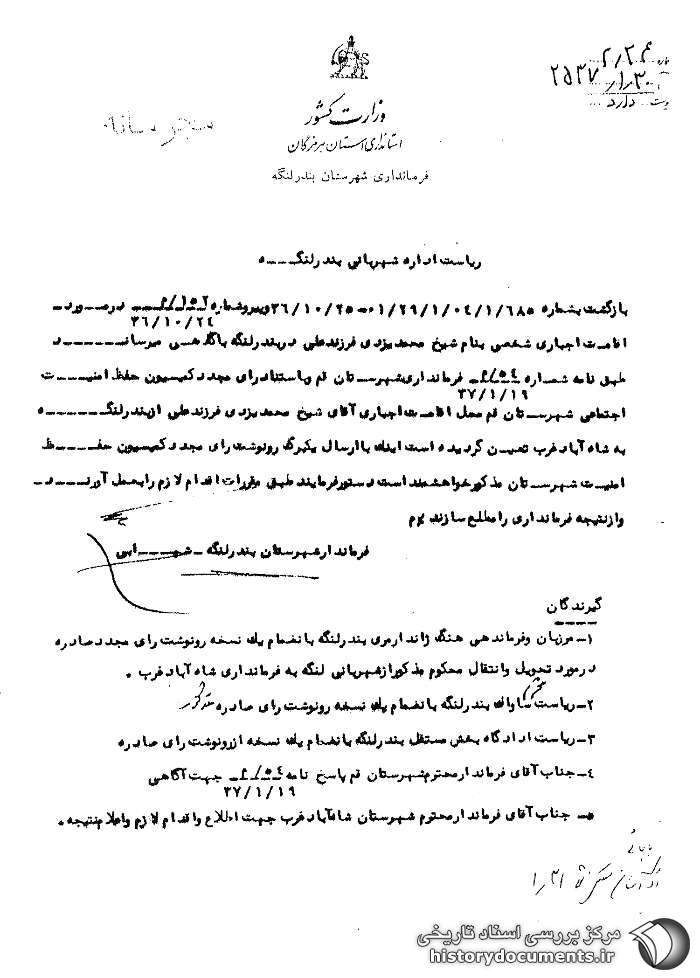 شماره ۲٫۲۴
۲۵۳۷٫۱٫۳۰
پیوست دارد
محرمانه
وزارت کشور
استانداری استان هرمزگان
فرمانداری شهرستان بندرلنگه
ریاست اداره شهربانی بندرلنگـــه
بازگشت بشماره ۰۱/۲۹/۱/۰۴/۱/۶۸۵-۳۶/۱۰/۲۵ وپیروشماره ۱۵۲/م درمـــورد
۳۶/۱۰/۲۴
اقامت اجباری شخصی بنام شیخ محمدیزدی فرزندعلی دربندرلنگه باگاهـی میرسانـــد
طبق نامه شماره ۵۴/م فرمانداری شهرستان قم وباستنادرای مجدد کمیسیون حفظ امنیـــت
۳۷/۱/۱۹
اجتماعی شهرستان قم محل اقامت اجباری آقای شیخ محمدیزدی فرزندعلی ازبندرلنگـــه
به شاه آبادغرب تعیین گردیده است اینک باارسال یکبرگ رونوشت رای مجدد کمیسیون حفـــظ
امنیت شهرستان مذکورخواهشمند است دستورفرمایند طبق مقررات اقدام لازم رابعمل آورنـــد
وازنتیجه فرمانداری رامطلع سازند م
فرماندارشهرستان بندرلنگه ـ شهـــابی
گیرندگان
۱-مرزبان وفرماندهی هنگ ژاندارمری بندرلنگه باانضمام یک نسخه رونوشت رای مجدد صادره
درمورد تحویل وانتقال محکوم مذکورازشهربانی لنگه به فرمانداری شاه آبادغرب .
۲-ریاست محترم ساواک بندرلنگه باانضمام یک نسخه رونوشت رای صادره مذکور
۳-ریاست دادگاه بخش مستقل بندرلنگه باانضمام یک نسخه ازرونوشت رای صادره
۴-جناب آقای فرماندارمحترم شهرستان قم پاسخ نامه ۵۴/م جهت آگاهی
۳۷/۱/۱۹
۵- جناب آقای فرماندارمحترم شهرستان شاه آبادغرب جهت اطلاع واقدام لازم واعلام نتیجه .
۱٫۳۱
مرکز بررسی اسناد تاریخی
historydocuments.ir